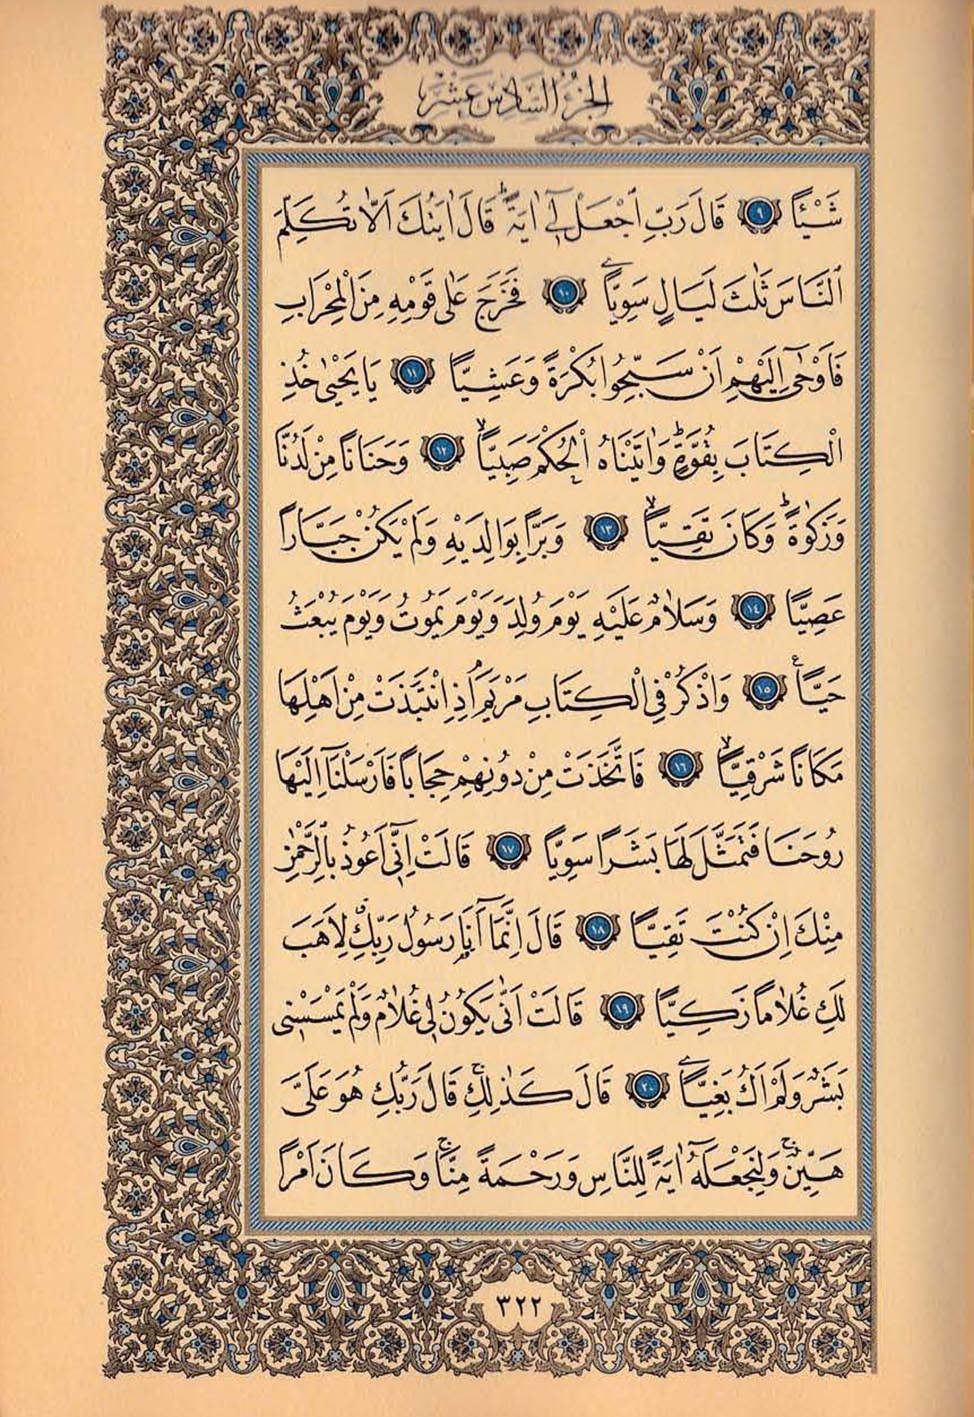 الجزء السادس عشر
شَيْـًٔا ۝٩ قَالَ رَبِّ ٱجْعَلْ لِٓى اٰيَةًۜ قَالَ اٰيَتُكَ اَلَّا تُكَلِّمَ
ٱلنَّاسَ ثَلٰثَ لَيَالٍ سَوِيًّا ۝١٠ فَخَرَجَ عَلٰى قَوْمِهِ مِنَ الْمِحْرَابِ
فَاَوْحٰٓى اِلَيْهِمْ اَنْ سَبِّحُوا بُكْرَةً وَعَشِيًّا ۝١١ يَا يَحْيٰى خُذِ
الْكِتَابَ بِقُوَّةٍۜ وَاٰتَيْنَاهُ الْحُكْمَ صَبِيًّاۙ ۝١٢ وَحَنَانًا مِنْ لَدُنَّا
وَزَكٰوةًۜ وَكَانَ تَقِيًّاۙ ۝١٣ وَبَرًّا بِوَالِدَيْهِ وَلَمْ يَكُنْ جَبَّارًا
عَصِيًّا ۝١٤ وَسَلَامٌ عَلَيْهِ يَوْمَ وُلِدَ وَيَوْمَ يَمُوتُ وَيَوْمَ يُبْعَثُ
حَيًّا ۝١٥ وَاذْكُرْ فِى الْكِتَابِ مَرْيَمَۢ اِذِ انْتَبَذَتْ مِنْ اَهْلِهَا
مَكَانًا شَرْقِيًّاۙ ۝١٦ فَاتَّخَذَتْ مِنْ دُونِهِمْ حِجَابًا فَاَرْسَلْنَٓا اِلَيْهَا
رُوحَنَا فَتَمَثَّلَ لَهَا بَشَرًا سَوِيًّا ۝١٧ قَالَتْ اِنِّٓى اَعُوذُ بِالرَّحْمٰنِ
مِنْكَ اِنْ كُنْتَ تَقِيًّا ۝١٨ قَالَ اِنَّمَٓا اَنَا۬ رَسُولُ رَبِّكِۗ لِاَهَبَ
لَكِ غُلَامًا زَكِيًّا ۝١٩ قَالَتْ اَنّٰى يَكُونُ لِى غُلَامٌ وَلَمْ يَمْسَسْنِى
بَشَرٌ وَلَمْ اَكُ بَغِيًّا ۝٢٠ قَالَ كَذٰلِكِۚ قَالَ رَبُّكِ هُوَ عَلَىَّ
هَيِّنٌۚ وَلِنَجْعَلَهُٓ اٰيَةً لِلنَّاسِ وَرَحْمَةً مِنَّاۚ وَكَانَ اَمْرًا
٣٢٢